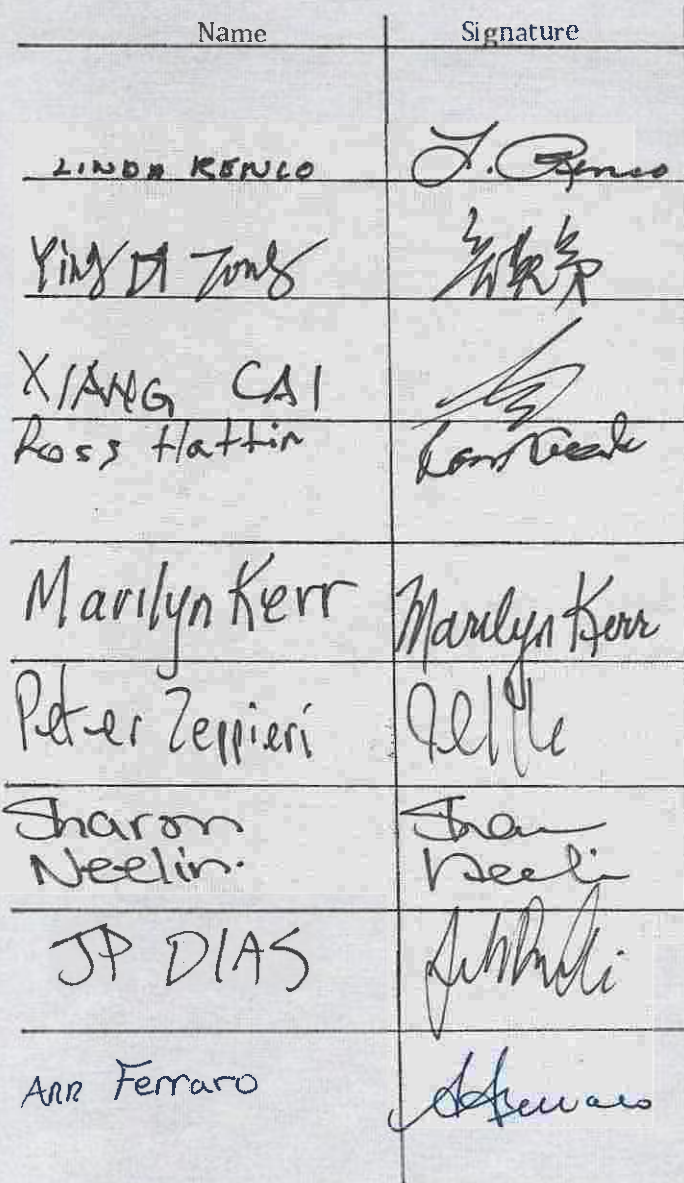 Name Signature
LINDA RENCO L. Renco
Ying Di Tong
XIANG CAI
Ross Hattin
Marilyn Kerr Marilyn Kerr
Peter Zeppieri
Sharon Sharon
Neelin. Neelin
JP DIAS
Ann Ferraro A Ferraro